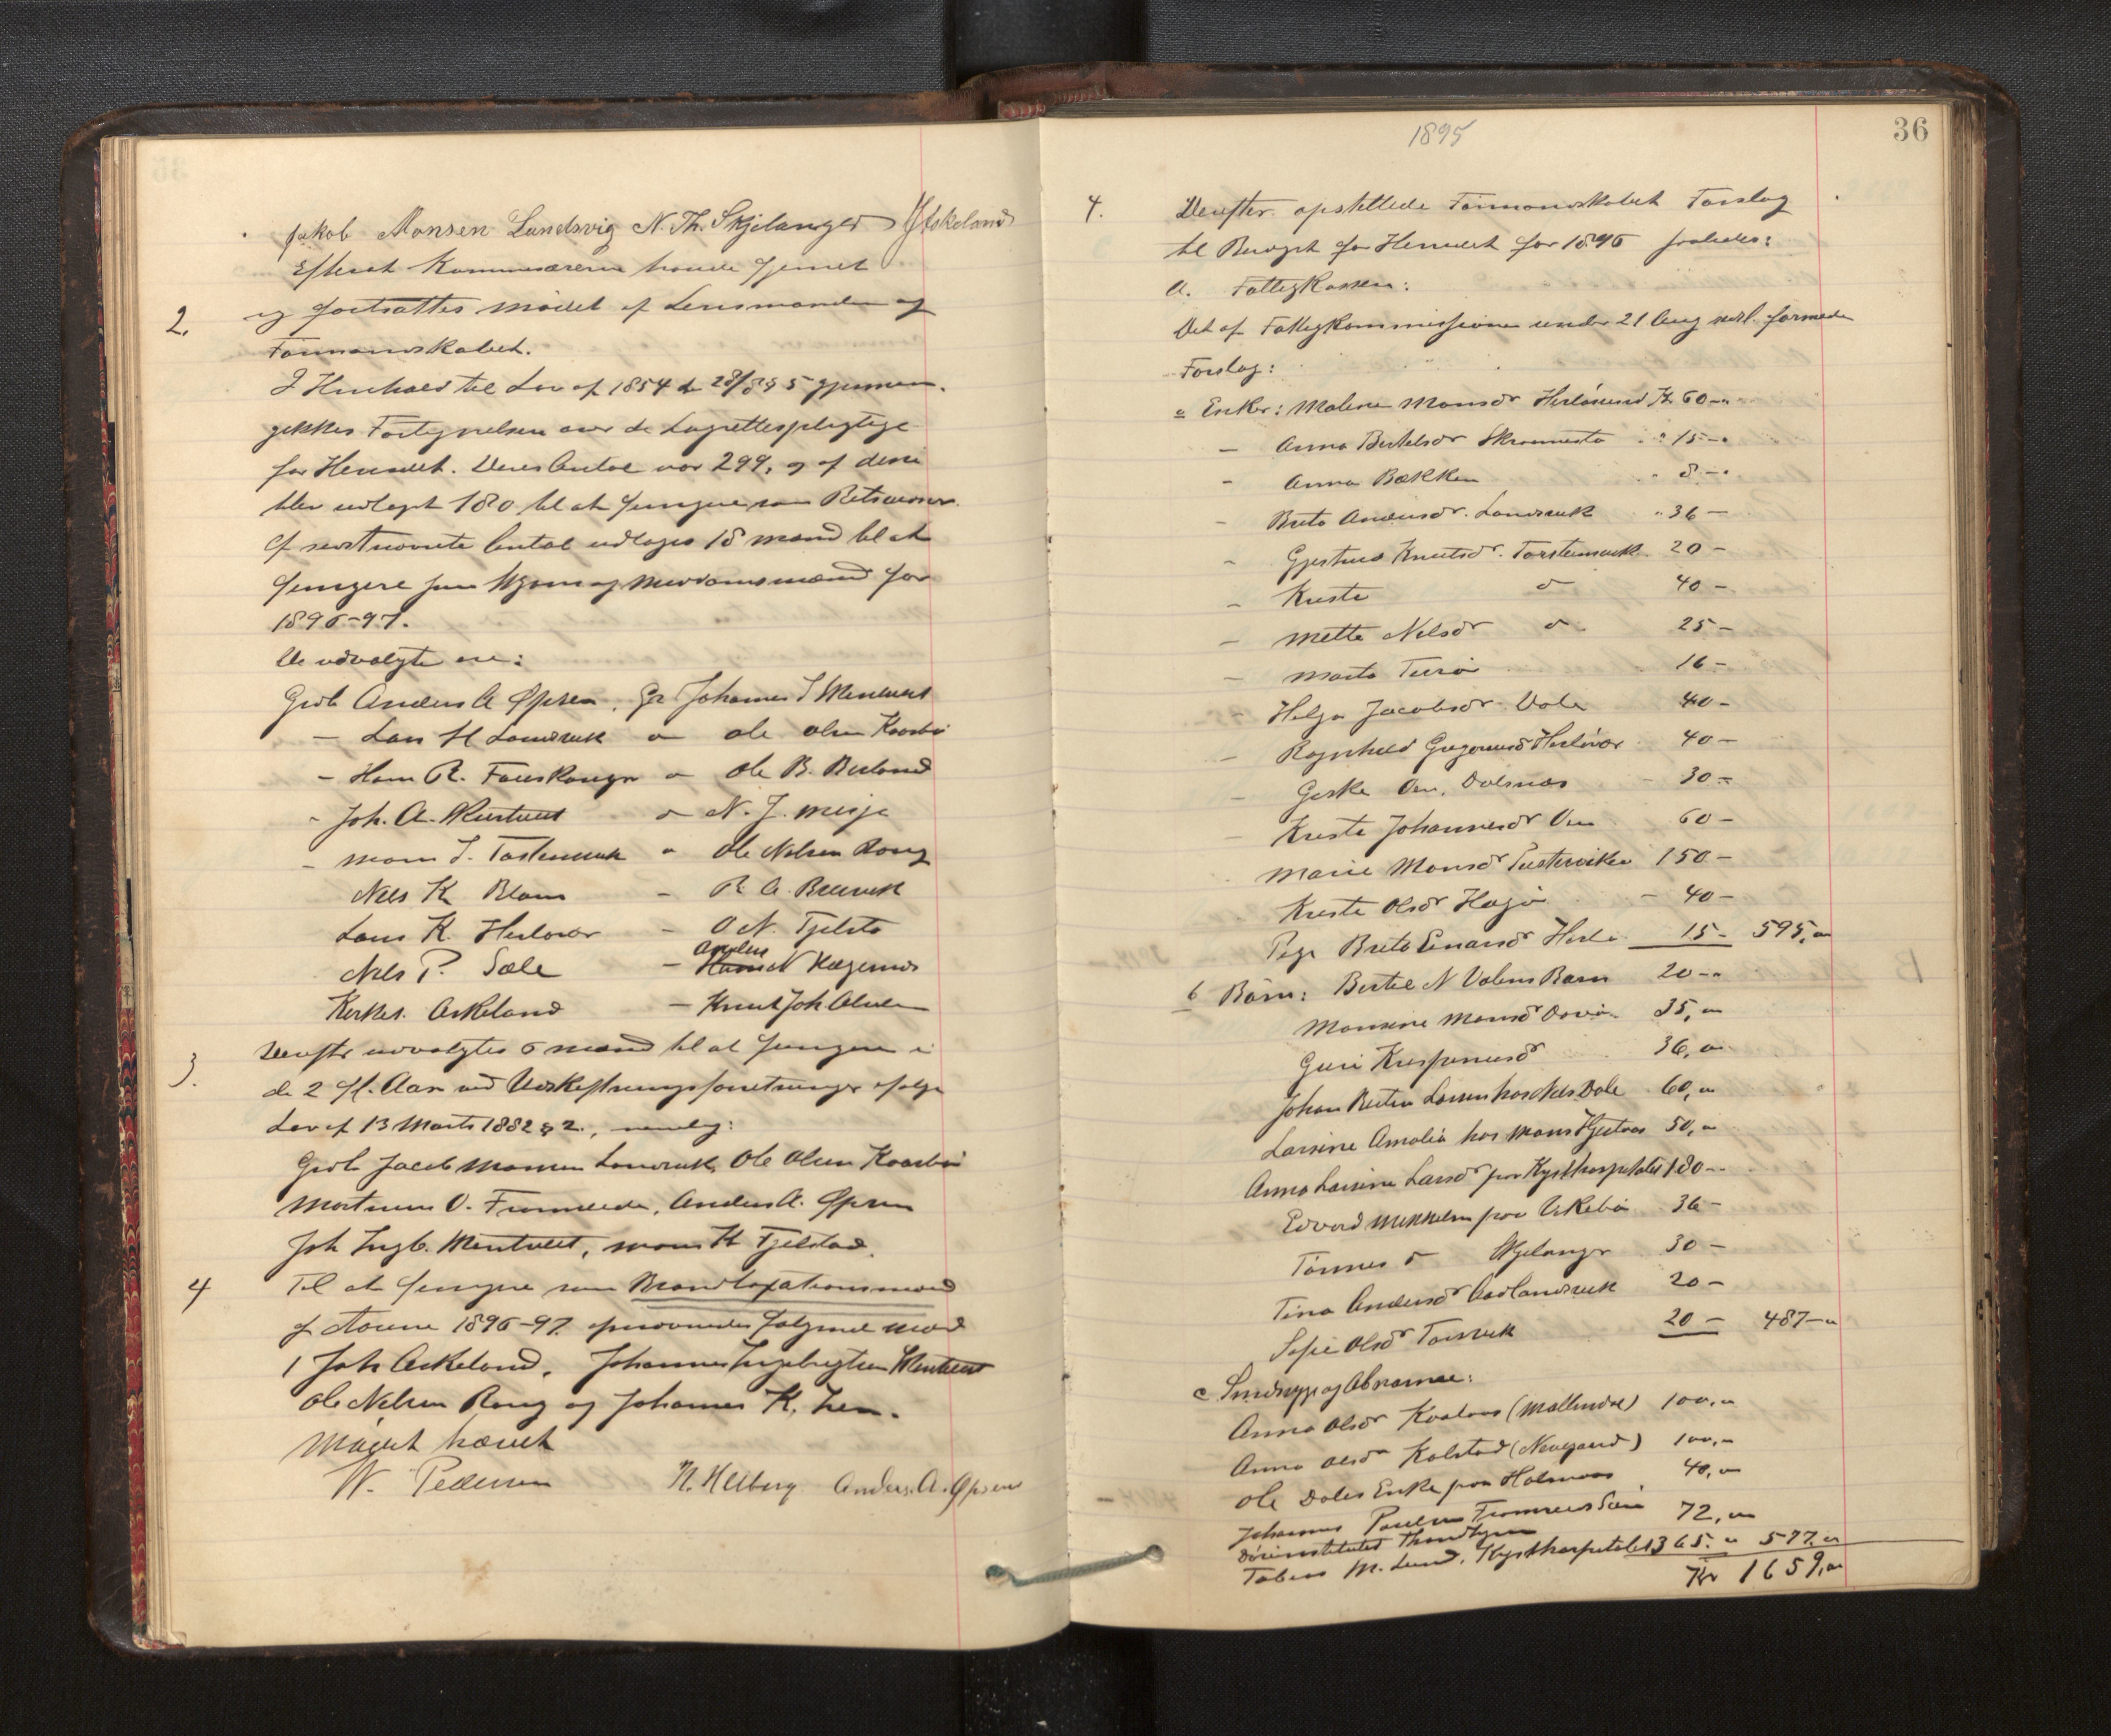 Jakob Monsen Landsvig N. Th. Skjelanger J Askeland
Efterat Kommissæren havde fjernet
2. sig fortsattes mødet af Lensmanden og
Formandskabet.
I Henhold til Lov af 1854 d 28/8 § 5 gjennem-
gikkes Fortegnelsen over de Lagrettespligtige
for Herredet. Deres Antal var 299, og af disse
blev udtaget 180 til at fungere som Retsvidner.
Af sidstnævnte Antal udtages 18 mand til at
fungere som Skjøns og Meddomsmænd for
1896-97.
De udvalgte ere:
Grdb Anders A Øpsen, Gr Johannes I Merkesvt
- Lars H Landsvik o ole olsen Kaarbø
- Hans R. Fauskanger o Ole B. Berland
- Joh. A. o N. J. Misje
- Mons J. Torsteinsvik o Ole Nilsen Rong
Nils K Blom - R. A. Brævik
Lars K. Herløvær - O N. Tjelsto
Nils P. Sæle - Anders N Hægernes
Kirkes. Askeland - Knut Joh Alvem
3. Derefter udvalgtes 6 mænd til at fungere i
de 2 ff. Aar ved Udskiftningsforretninger ifølge
Lov af 13 Marts 1882 § 2, nemlig:
Grdb Jacob Monsen Landsvik, Ole Olsen Kaarbø
Martinus O. Fromreide, Anders A. Øpsen
Joh Ingb. Mentveit, Mons H Tjelstad.
4 Til at fungere som Brandtaxationsmænd
for Aarene 1896-97 opnævnedes følgende mænd
1 Joh Askeland, Johannes Ingebrigtsen Mentveit
Ole Nilsen Rong og Johannes K.
Mødet hævet
W. Pedersen N. Helberg Anders. A. Øpsen
1895
36
4. Derefter opstillede Formandskabet Forslag
til Budget for Herredet for 1896 saaledes:
A. Fattigkassen:
Det af Fattigkommissionen under 21 Aug sidstl. formede
Forslag:
a Enker: Malene Monsdr Herløsund Kr 60 - "
- Anna Bertelsdr Skrammestø " 15 - "
- Anna Bækken " 8 - "
- Brita Andersdr. Landsvik " 36 -
- Gjertrud Knutsdr. Torsteinsvik 20 -
- Kristi o 40 -
- Mette Nilsdr o 25 -
- Marta Turøi 16 -
Helga Jacobsdr Dale 40 -
- Ragnhild Gregoriusd Herløvær 40 -
- Geske Dalsnæs 30 -
- Kristi Johannesdr 60 -
Marie Monsdr 150 -
Kristi Olsdr Hagø - 40 -
Pige Brita Einarsdr Herlø 15 - 595, "
b Børn: Bertel N Valens Barn 20 - "
Monsine Monsd 35, "
Guri Krispinusdr 36, "
Johan Larsen hos Nils Dale 60, "
Larsine Amalia hos Mons Hjertaas 50, "
Anna Larsine Larsdr paa Kysthospitalet 180 - "
Edvard Mikkelsen paa Ukebø 36 -
Tønnes o Skjelanger 30 -
Tina Andersdr Aadlandsvik 20 -
Sofie Olsdr Toresvik 20 - 487 - "
c Sindssyge og Abnorme:
Anna Olsdr Kvalvaag (Møllendal) 100, "
Anna Olsdr Kolstad (Neevgaard) 100, "
Ole Dales Enke paa Holmaas 40, "
Johannes Paulsen Fromreid 72, "
Døveinstitutet Throndhjem
Tobias M. Lund, Kysthospitalet 365. " 577. "
Kr 1659, "